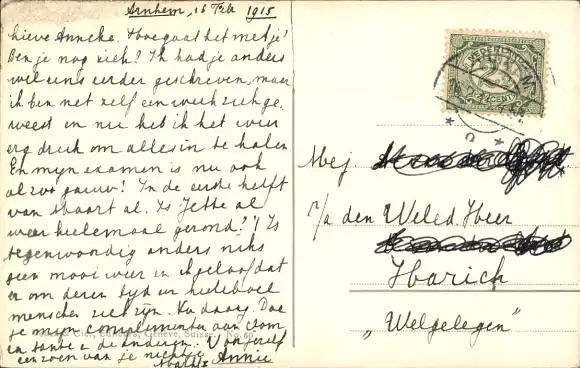 Arnhem, 16 Feb 1915
Lieve Anneke. Hoe gaat het met je?
Ben je nog ziek? Ik had je anders
wel eens eerder geschreven, maar
ik ben net zelf een week ziek ge-
weest en nu heb ik het weer
erg druk om alles in te halen
En mijn examen is nu ook
al zoo gauw! In de eerste helft
van Maart al. Is Jettie al
weer heelemaal gezond? 't Is
tegenwoordig anders niks
geen mooi weer en ik geloof dat
er om dezen tijd een heeleboel
menschen ziek zijn. Nu daag. Doe
je mijn complimenten aan Oom
en tante en de anderen. Voor jezelf
een zoen van je nichtje
Annie
Mej
p/a den WelEd Heer
Harich
„Welgelegen"
NEDERLAND
2½
CENT
Editeurs, Genève, Suisse. No